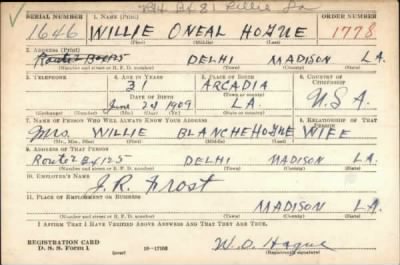 SERIAL NUMBER 1. NAME (Print) ORDER NUMBER
1646 WILLIE ONEAL HOGUE 1778
(First) (Middle) (Last)
2. ADDRESS (Print)
Route 2 Box 125 DELHI MADISON LA.
(Number and street or R. F. D. number) (Town) (County) (State)
3. TELEPHONE 4. AGE IN YEARS 5. PLACE OF BIRTH 6. COUNTRY OF CITIZENSHIP
31 ARCADIA
DATE OF BIRTH (Town or county)
June 2d 1909 LA. U.S.A.
(Exchange) (Number) (Mo.) (Day) (Yr.) (State or country)
7. NAME OF PERSON WHO WILL ALWAYS KNOW YOUR ADDRESS 8. RELATIONSHIP OF THAT PERSON
Mrs. WILLIE BLANCHE HOGUE WIFE
(Mr., Mrs., Miss) (First) (Middle) (Last)
9. ADDRESS OF THAT PERSON
Route 2 Bx 125 DELHI MADISON LA.
(Number and street or R. F. D. number) (Town) (County) (State)
10. EMPLOYER'S NAME
J.R. Frost
11. PLACE OF EMPLOYMENT OR BUSINESS
MADISON LA.
(Number and street or R. F. D. number) (Town) (County) (State)
I AFFIRM THAT I HAVE VERIFIED ABOVE ANSWERS AND THAT THEY ARE TRUE.
REGISTRATION CARD
D. S. S. Form 1 (over) 16—17105 W.O. Hogue
(Registrant's signature)